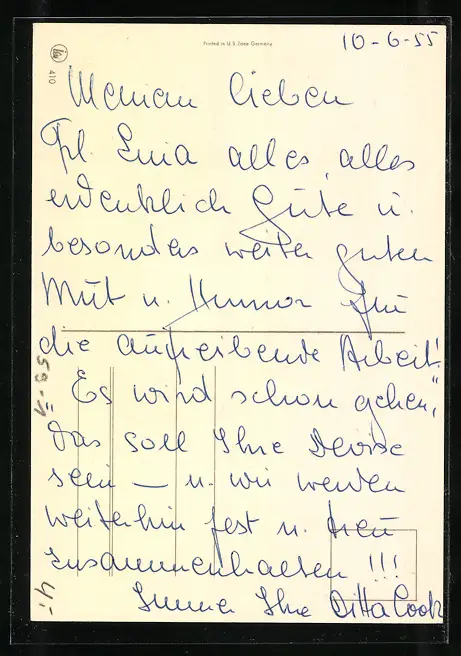 Printed in U.S. Zone Germany
10-6-55
410
Meinen lieben
Frl. Enia alles, alles
erdenklich Gute u.
besonders weiter guten
Mut u. Humor für
die aufreibende Arbeit!
"Es wird schon gehen",
das soll Ihre Devise
sein — u. wir werden
weiterhin fest u. treu
zusammenhalten!!!
Immer Ihre Ditta Cook